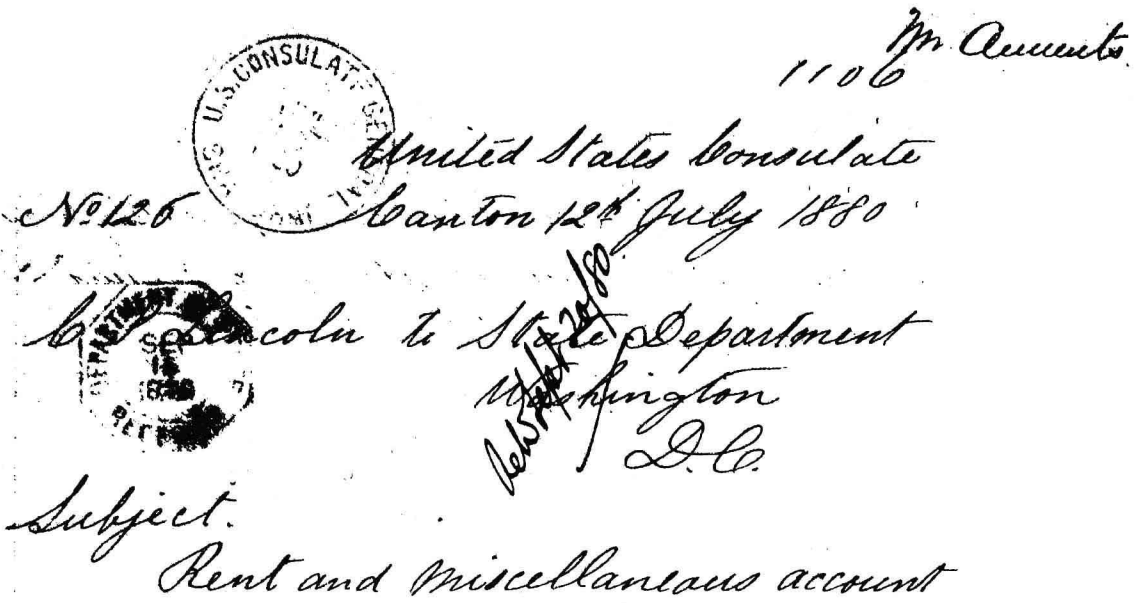 1106
U.S. CONSULATE GENERAL
United States Consulate
Canton 12th July 1880
C. P. Lincoln to State Department
Washington
D.C.
DEPARTMENT
Sept 20/80
Subject.
Rent and Miscellaneous account